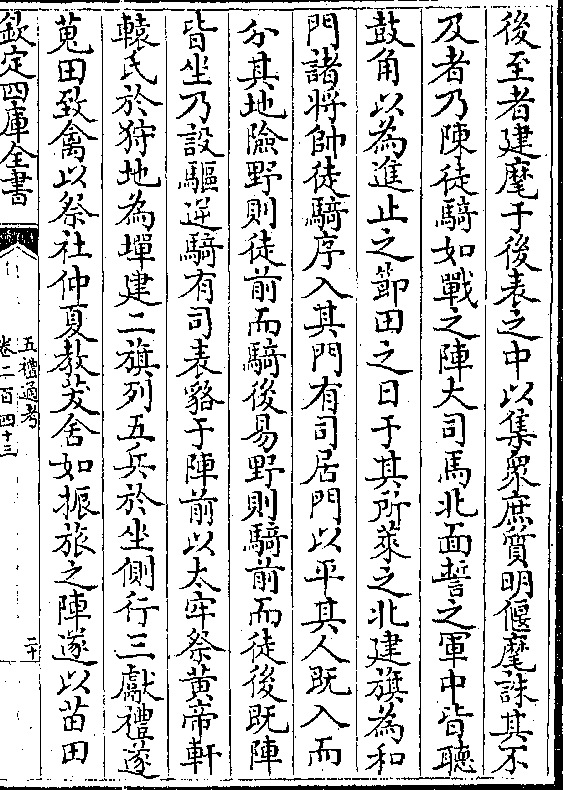 後至者建麾于後表之中以集衆庶質明偃麾誅其不
及者乃陳徒騎如戰之陣大司馬北面誓之軍中皆聽
鼓角以為進止之節田之日于其所萊之北建旗為和
門諸將帥徒騎序入其門有司居門以平其人既入而
分其地險野則徒前而騎後易野則騎前而徒後既陣
皆坐乃設驅逆騎有司表貉于陣前以太牢祭黄帝軒
轅氏於狩地為墠建二旗列五兵於坐側行三獻禮遂
蒐田致禽以祭社仲夏教茇舍如振旅之陣遂以苗田
欽定四庫全書
五禮通考
卷二百四十三
二十